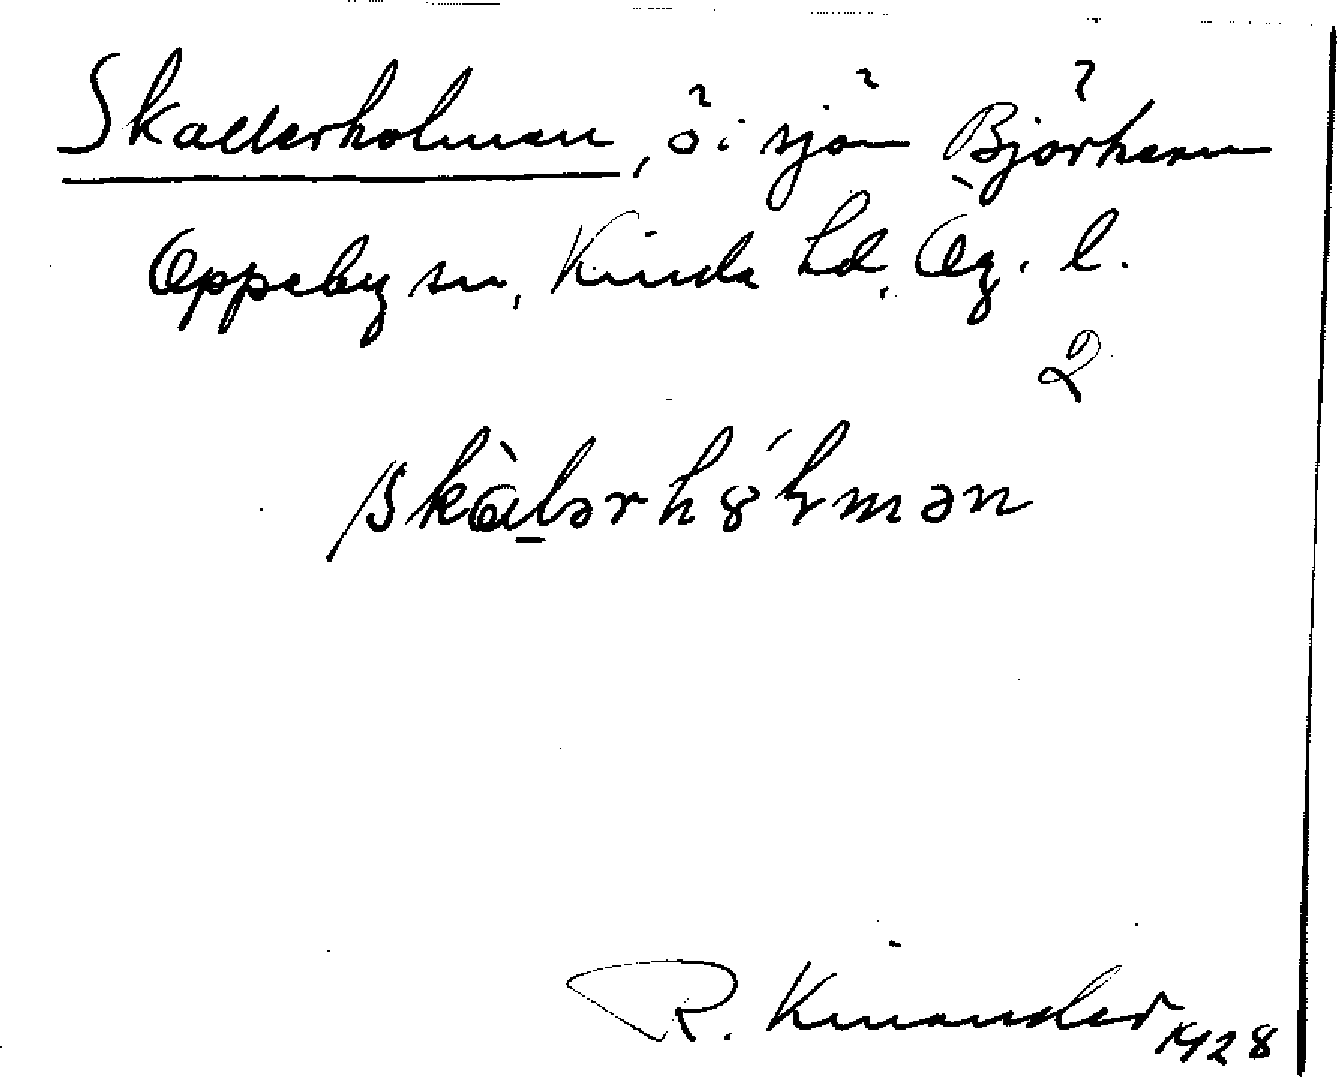 Skallerholmen, ö i sjön Björkern
Oppeby sn, Kinda hd, Ög. l.
2
R. Kinander 1928